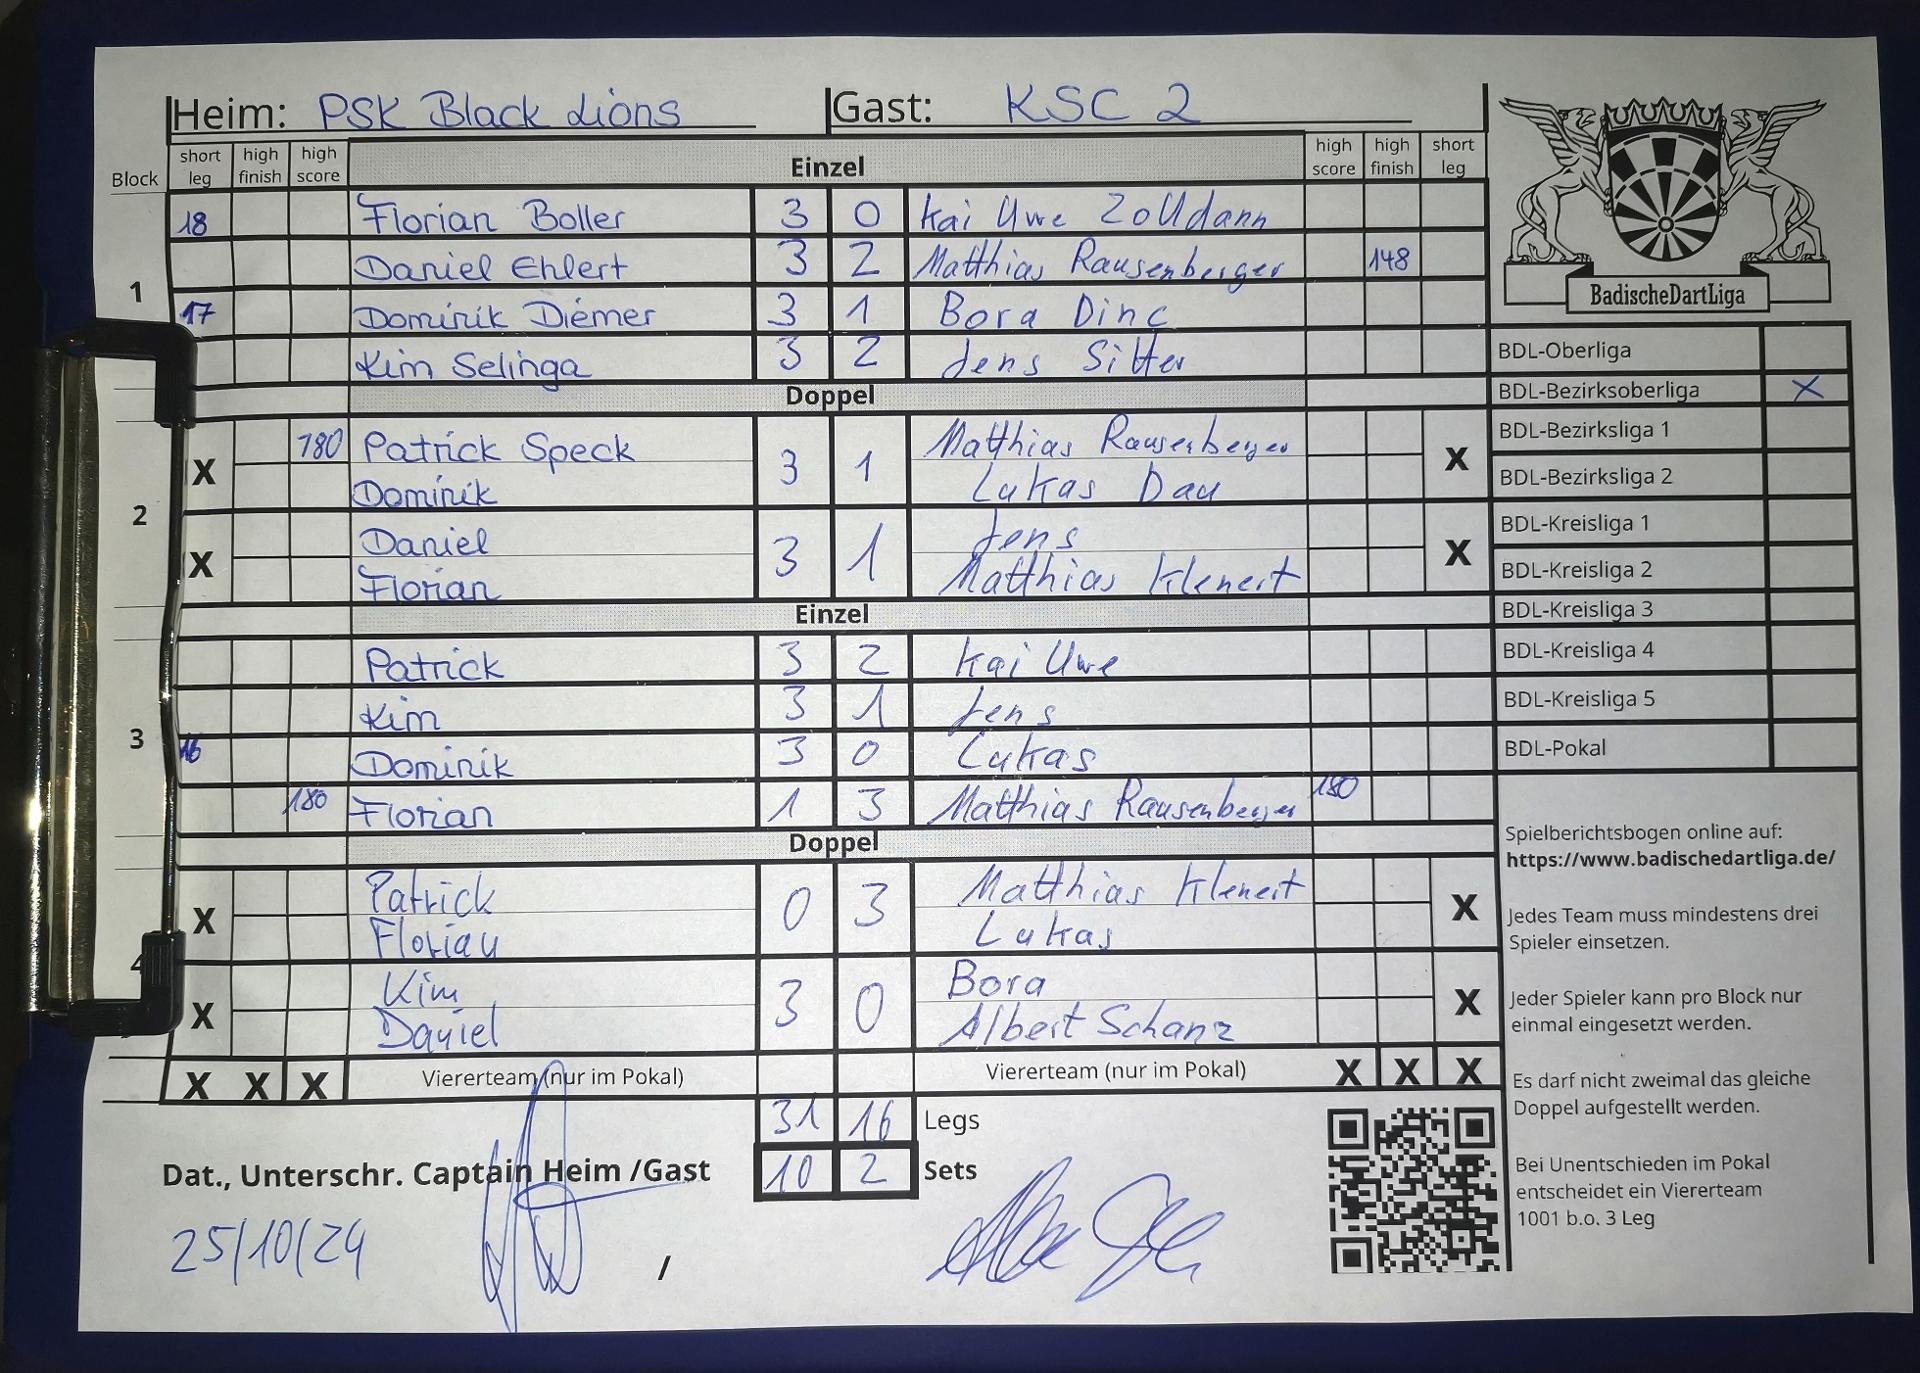 Heim: PSK Black Lions Gast: KSC 2
Block short leg high finish high score Einzel high score high finish short leg
18 Florian Boller 3 0 Kai Uwe Zolldann
Daniel Ehlert 3 2 Matthias Rausenberger 148
1
17 Dominik Diemer 3 1 Bora Dinc
Kim Selinga 3 2 Jens Sitter
Doppel
180 Patrick Speck 3 1 Matthias Rausenberger
X Dominik Lukas Dau X
2
Daniel 3 1 Jens
X Florian Matthias Klenert X
Einzel
Patrick 3 2 Kai Uwe
Kim 3 1 Jens
3
16 Dominik 3 0 Lukas
180 Florian 1 3 Matthias Rausenberger 180
Doppel
Patrick 0 3 Matthias Klenert
X Florian Lukas X
4
Kim 3 0 Bora
X Daniel Albert Schanz X
X X X Viererteam (nur im Pokal) Viererteam (nur im Pokal) X X X
31 16 Legs
Dat., Unterschr. Captain Heim /Gast 10 2 Sets
25/10/24 /
BadischeDartLiga
BDL-Oberliga
BDL-Bezirksoberliga X
BDL-Bezirksliga 1
BDL-Bezirksliga 2
BDL-Kreisliga 1
BDL-Kreisliga 2
BDL-Kreisliga 3
BDL-Kreisliga 4
BDL-Kreisliga 5
BDL-Pokal
Spielberichtsbogen online auf:
https://www.badischedartliga.de/
Jedes Team muss mindestens drei
Spieler einsetzen.
Jeder Spieler kann pro Block nur
einmal eingesetzt werden.
Es darf nicht zweimal das gleiche
Doppel aufgestellt werden.
Bei Unentschieden im Pokal
entscheidet ein Viererteam
1001 b.o. 3 Leg